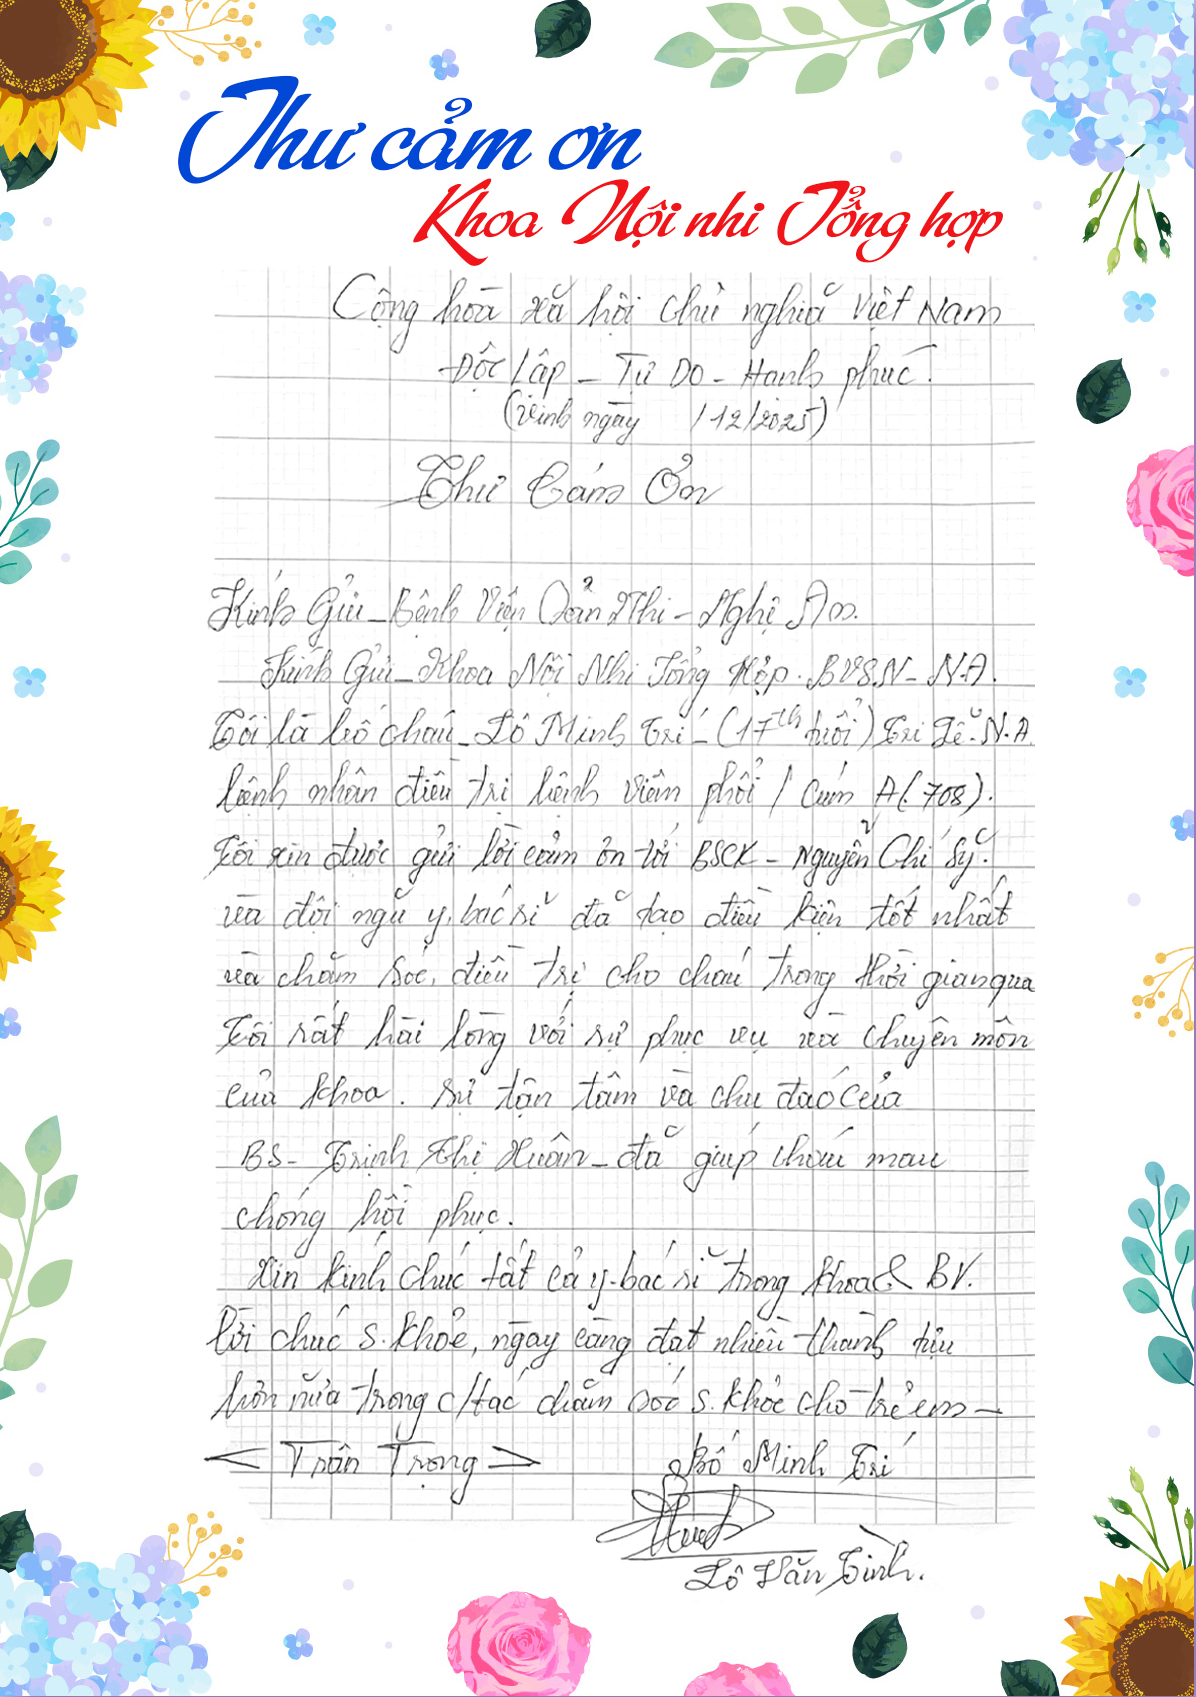 Thư cảm ơn
Khoa Nội nhi Tổng hợp
Cộng hòa xã hội chủ nghĩa Việt Nam
Độc Lập - Tự Do - Hạnh phúc.
(Vinh ngày /12/2025)
Thư Cám Ơn
Kính Gửi - Bệnh Viện Sản Nhi - Nghệ An.
Kính Gửi - Khoa Nội Nhi Tổng Hợp. BVSN - N.A.
Tôi là bố cháu - Lô Minh Trí - (17th tuổi) Tri Lễ. N.A
bệnh nhân điều trị bệnh viêm phổi / Cúm A (.708).
Tôi xin được gửi lời cảm ơn tới BSCK - Nguyễn Chí Sỹ.
và đội ngũ y, bác sĩ đã tạo điều kiện tốt nhất
và chăm sóc, điều trị cho cháu trong thời gian qua
Tôi rất hài lòng với sự phục vụ và chuyên môn
của khoa. sự tận tâm và chu đáo của
BS - Trịnh Thị Xuân - đã giúp cháu mau
chóng hồi phục.
Xin kính chúc tất cả y-bác sĩ trong khoa & BV.
lời chúc s.khỏe, ngày càng đạt nhiều thành tựu
hơn nữa trong c/tác chăm sóc s.khỏe cho trẻ em -
< Trân Trọng >
Bố Minh Trí
Lô Văn Tình.